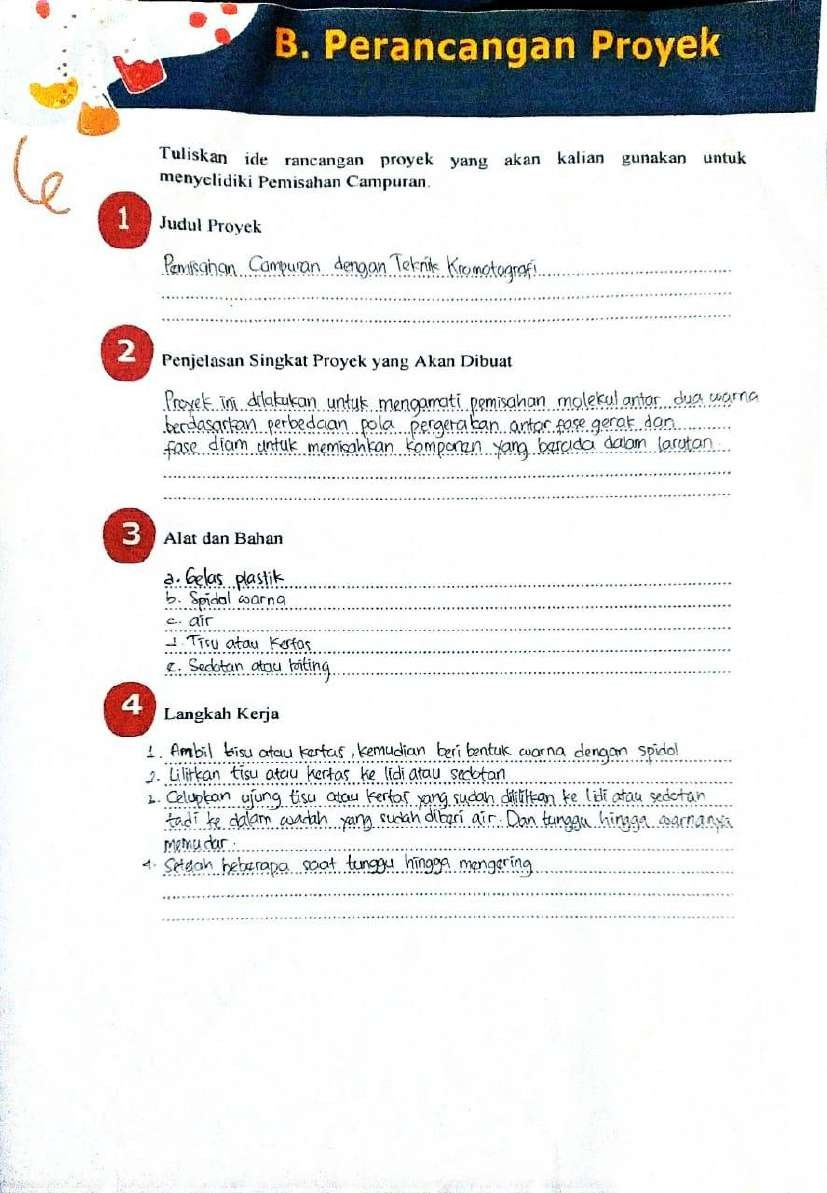 B. Perancangan Proyek
Tuliskan ide rancangan proyek yang akan kalian gunakan untuk
menyelidiki Pemisahan Campuran.
1 Judul Proyek
Pemisahan Campuran dengan Teknik Kromatografi
2 Penjelasan Singkat Proyek yang Akan Dibuat
Proyek ini dilakukan untuk mengamati pemisahan molekul antar dua warna
berdasarkan perbedaan pola pergerakan antar fase gerak dan
fase diam untuk memisahkan komponen yang berada dalam larutan
3 Alat dan Bahan
a. Gelas plastik
b. Spidol warna
c. air
d. Tisu atau Kertas
e. Sedotan atau
4 Langkah Kerja
1. Ambil tisu atau kertas, kemudian beri bentuk warna dengan spidol
2. Lilitkan tisu atau kertas ke lidi atau sedotan
3. Celupkan ujung tisu atau kertas yang sudah dililitkan ke lidi atau sedotan
tadi ke dalam wadah yang sudah diberi air. Dan tunggu hingga warnanya
memudar.
4. Setelah beberapa saat tunggu hingga mengering